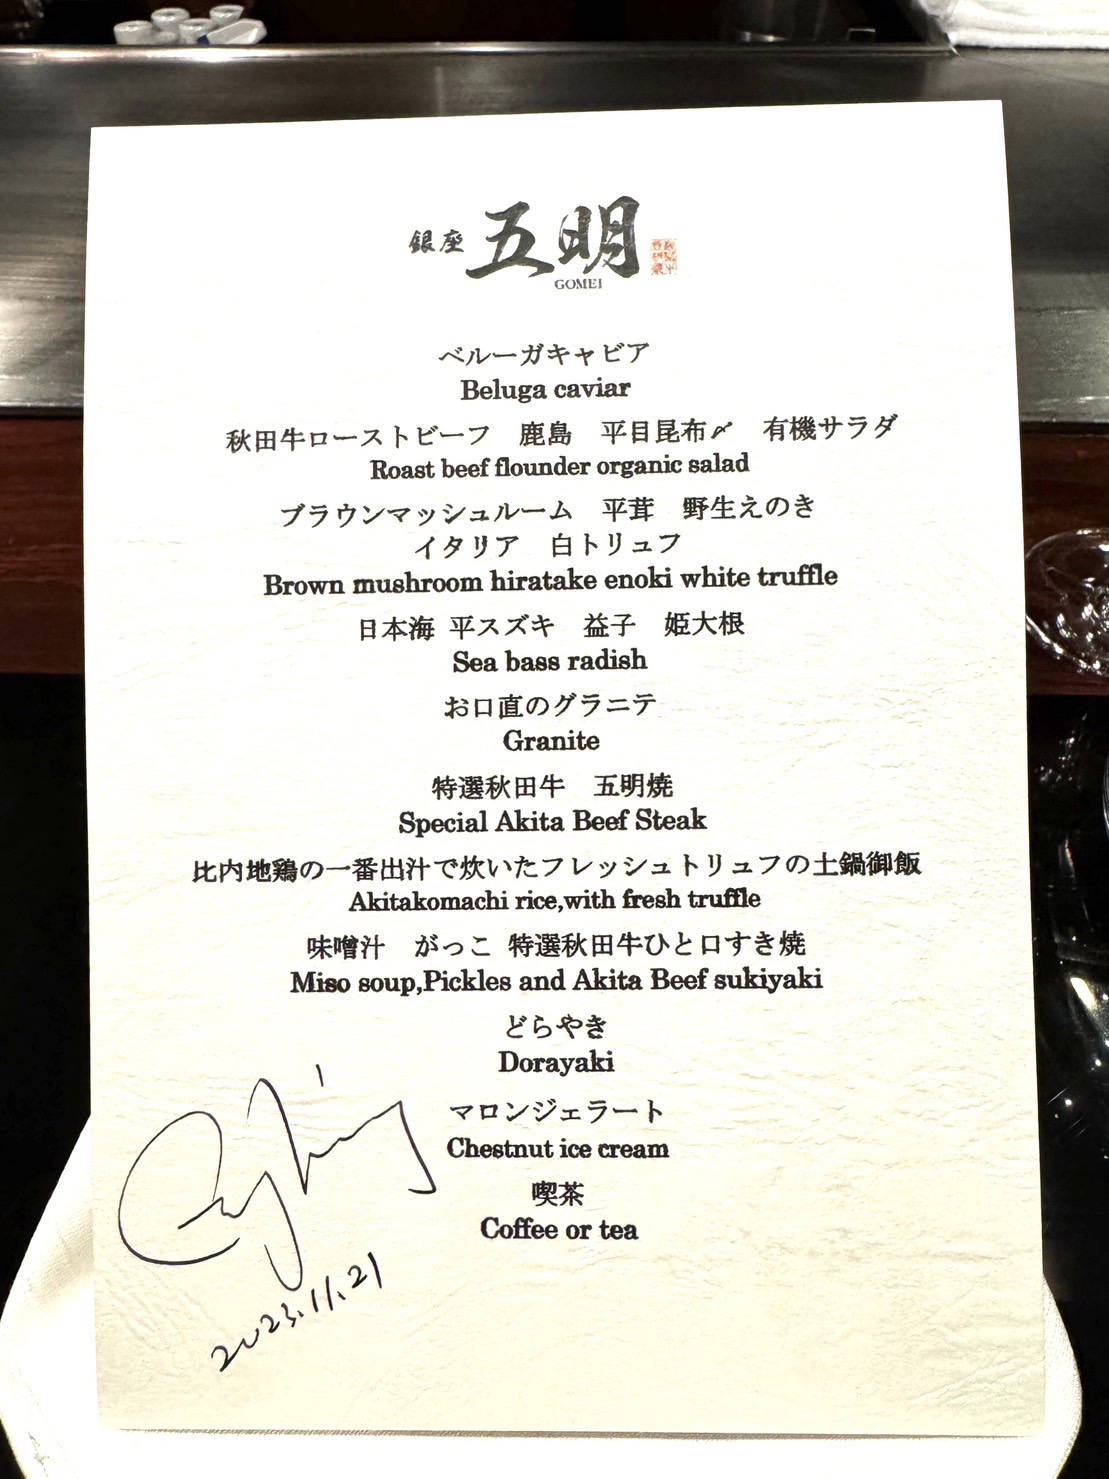 銀座 五明
GOMEI
ベルーガキャビア
Beluga caviar
秋田牛ローストビーフ　鹿島　平目昆布〆　有機サラダ
Roast beef flounder organic salad
ブラウンマッシュルーム　平茸　野生えのき
イタリア　白トリュフ
Brown mushroom hiratake enoki white truffle
日本海 平スズキ　益子　姫大根
Sea bass radish
お口直のグラニテ
Granite
特選秋田牛　五明焼
Special Akita Beef Steak
比内地鶏の一番出汁で炊いたフレッシュトリュフの土鍋御飯
Akitakomachi rice,with fresh truffle
味噌汁　がっこ 特選秋田牛ひと口すき焼
Miso soup,Pickles and Akita Beef sukiyaki
どらやき
Dorayaki
マロンジェラート
Chestnut ice cream
喫茶
Coffee or tea
2023.11.21